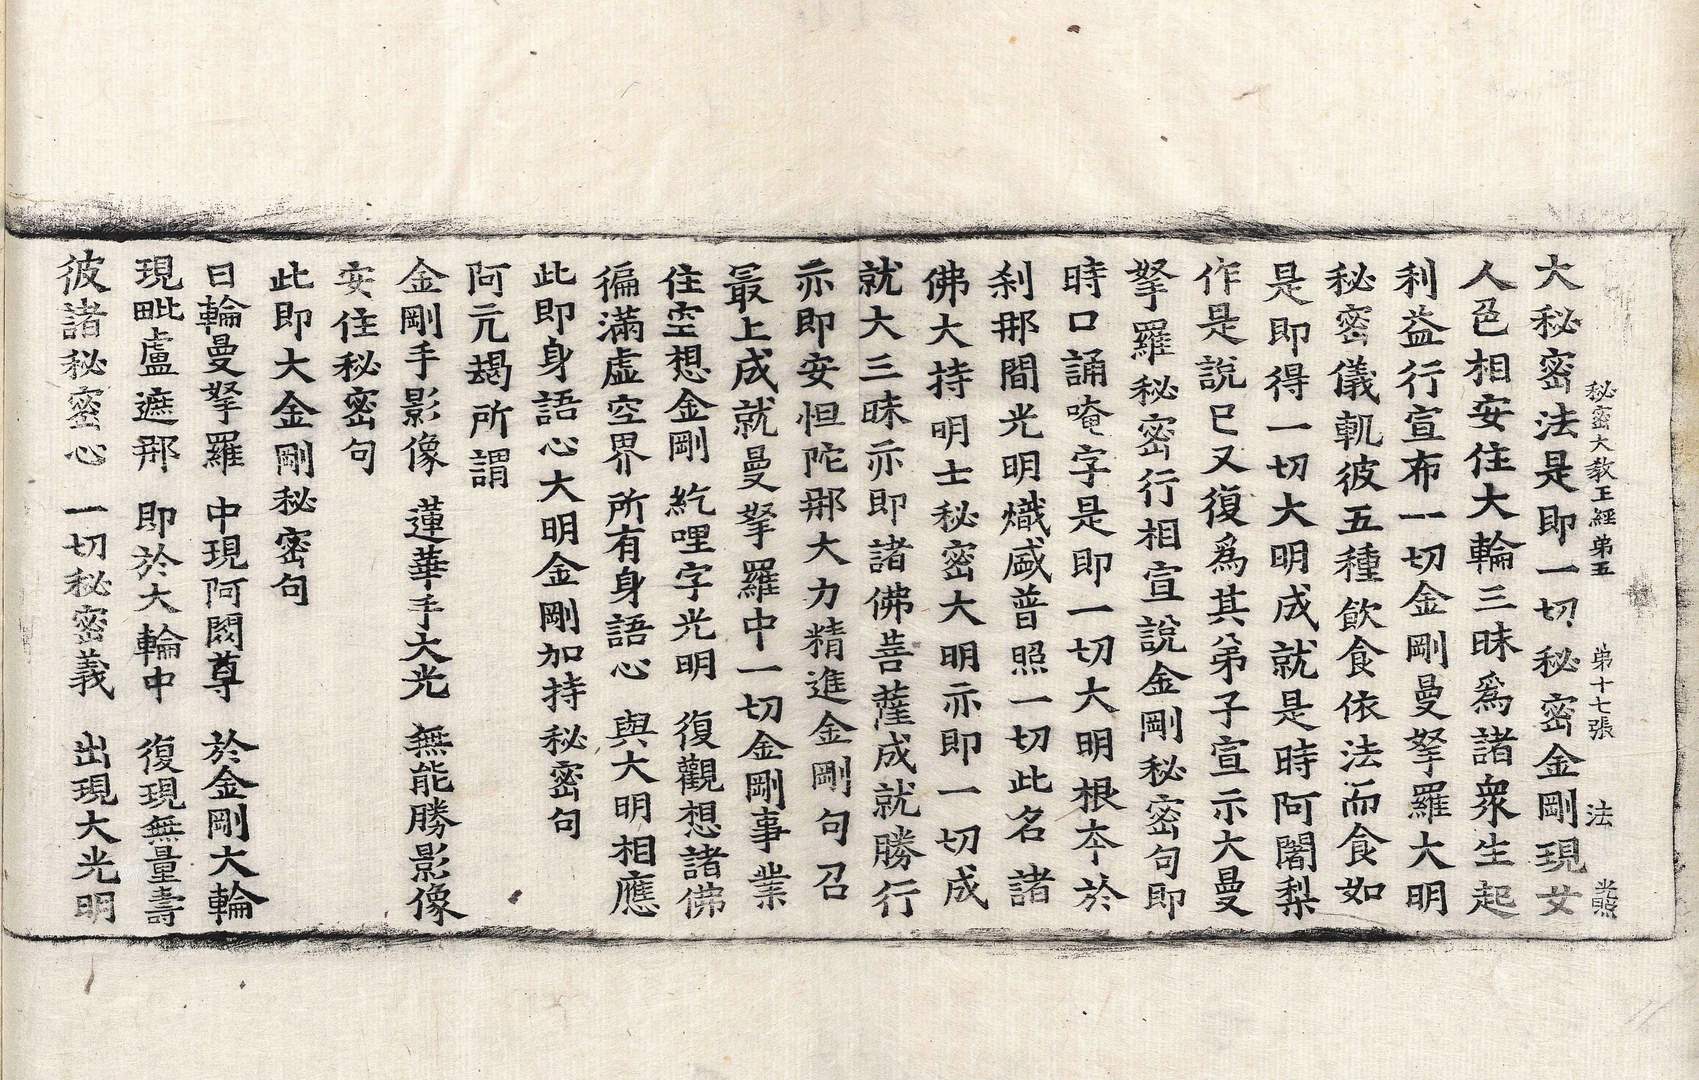 秘密大教王經第五 第十七張 法 光照
大秘密法是即一切秘密金剛現女
人色相安住大輪三昧爲諸衆生起
利益行宣布一切金剛曼拏羅大明
秘密儀軌彼五種飲食依法而食如
是即得一切大明成就是時阿闍梨
作是説已又復爲其弟子宣示大曼
拏羅秘密行相宣説金剛秘密句即
時口誦唵字是即一切大明根夲於
刹那間光明熾盛普照一切此名諸
佛大持明士秘密大明亦即一切成
就大三昧亦即諸佛菩薩成就勝行
亦即安怛陀那大力精進金剛句召
最上成就曼拏羅中一切金剛事業
住空想金剛 紇哩字光明 復觀想諸佛
徧滿虚空界 所有身語心 與大明相應
此即身語心大明金剛加持秘密句
阿亢朅所謂
金剛手影像 蓮華手大光 無能勝影像
安住秘密句
此即大金剛秘密句
日輪曼拏羅 中現阿閦尊 於金剛大輪
現毗盧遮那 即於大輪中 復現無量壽
彼諸秘密心 一切秘密義 出現大光明